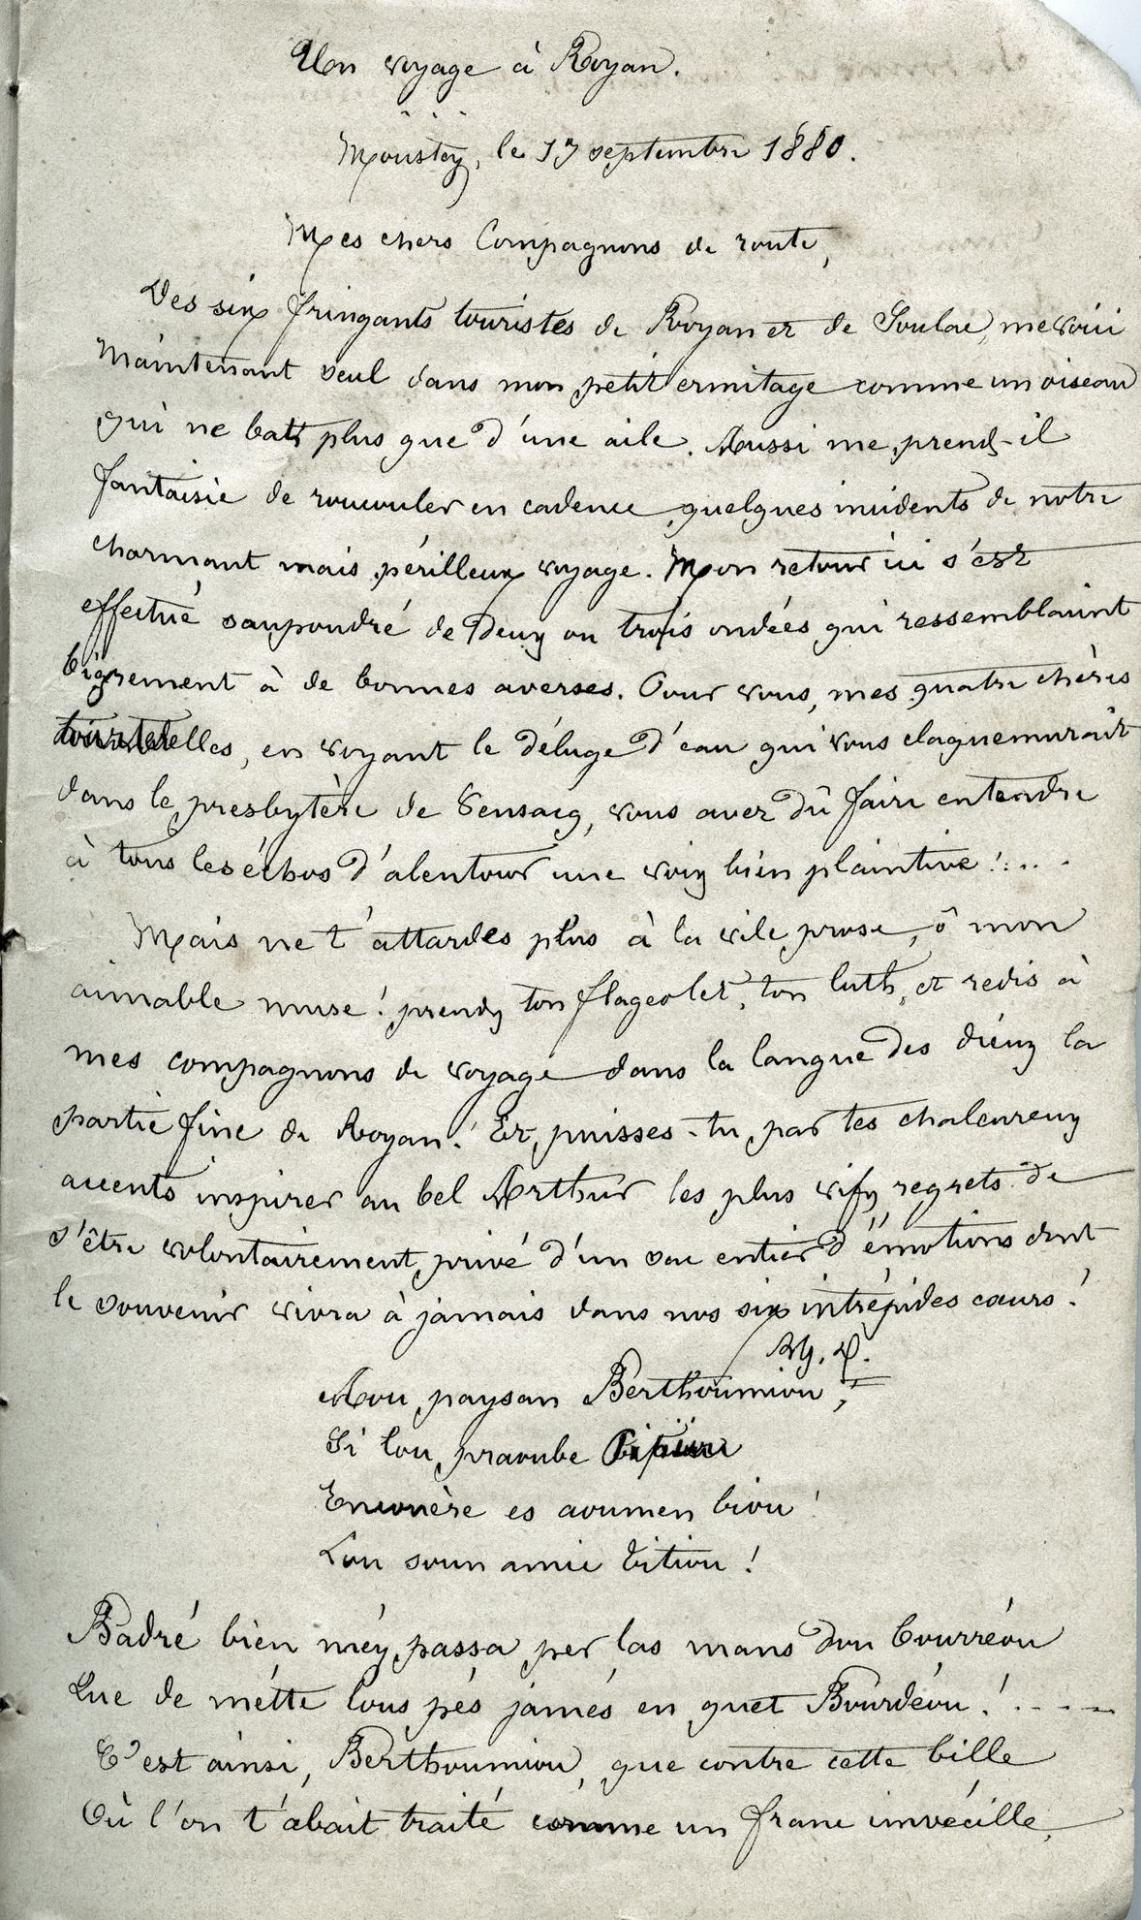 Un voyage à Royan.
Moustey, le 17 septembre 1880.
Mes chers Compagnons de route,
Des six fringants touristes de Royan et de Soulac, me voici
maintenant seul dans mon petit ermitage comme un oiseau
qui ne bat plus que d'une aile. Aussi me prend-il
fantaisie de roucouler en cadence quelques incidents de notre
charmant mais périlleux voyage. Mon retour ici s'est
effectué saupoudré de deux ou trois ondées qui ressemblaient
bigrement à de bonnes averses. Pour vous, mes quatre chères
tourterelles, en voyant le déluge d'eau qui vous claquemurait
dans le presbytère de Vensacq, vous avez dû faire entendre
à tous les échos d'alentour une voix bien plaintive !...
Mais ne t'attardes plus à la vile prose, ô mon
aimable muse ! prends ton flageolet, ton luth, et redis à
mes compagnons de voyage dans la langue des dieux la
partie fine de Royan. Et puisses-tu par tes chaleureux
accents inspirer au bel Arthur les plus vifs regrets de
s'être volontairement privé d'un sac entier d'émotions dont
le souvenir vivra à jamais dans nos six intrépides cœurs !
Mou paysan Berthoumiou,
Si lou praoube
Encouère es aoumen biou
Lou soun amic Titiou !
Badré bien méy passa per las mans dou bourréou
Que de métte lous pés jamés en quet Bourdéou ! ....
C'est ainsi, Berthoumiou, que contre cette bille
Où l'on t'abait traité comme un franc imvécille,